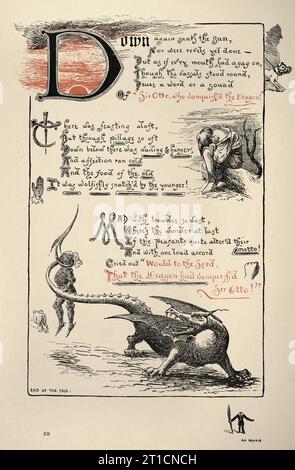 Down again sank the sun,
Nor were revels yet done –
But as if ev'ry mouth had a gag on,
Though the vassals stood round,
Ne'er a word or a sound
Of Sir Otto, who vanquish'd the Dragon!
There was feasting aloft,
But through pillage so oft
Down below there was wailing & hunger,
And affection ran cold
And the food of the old
It was wolfishly snatch'd by the younger!
Mad with troubles so vast,
Where's the wonder at last
If the Peasants quite alter'd their motto!
And with one loud accord
Cried out "Would to the Lord,
That the Dragon had vanquish'd
Sir Otto!"
END OF THE TALE.
20
alamy
Image ID: 2T1CNCH
www.alamy.com